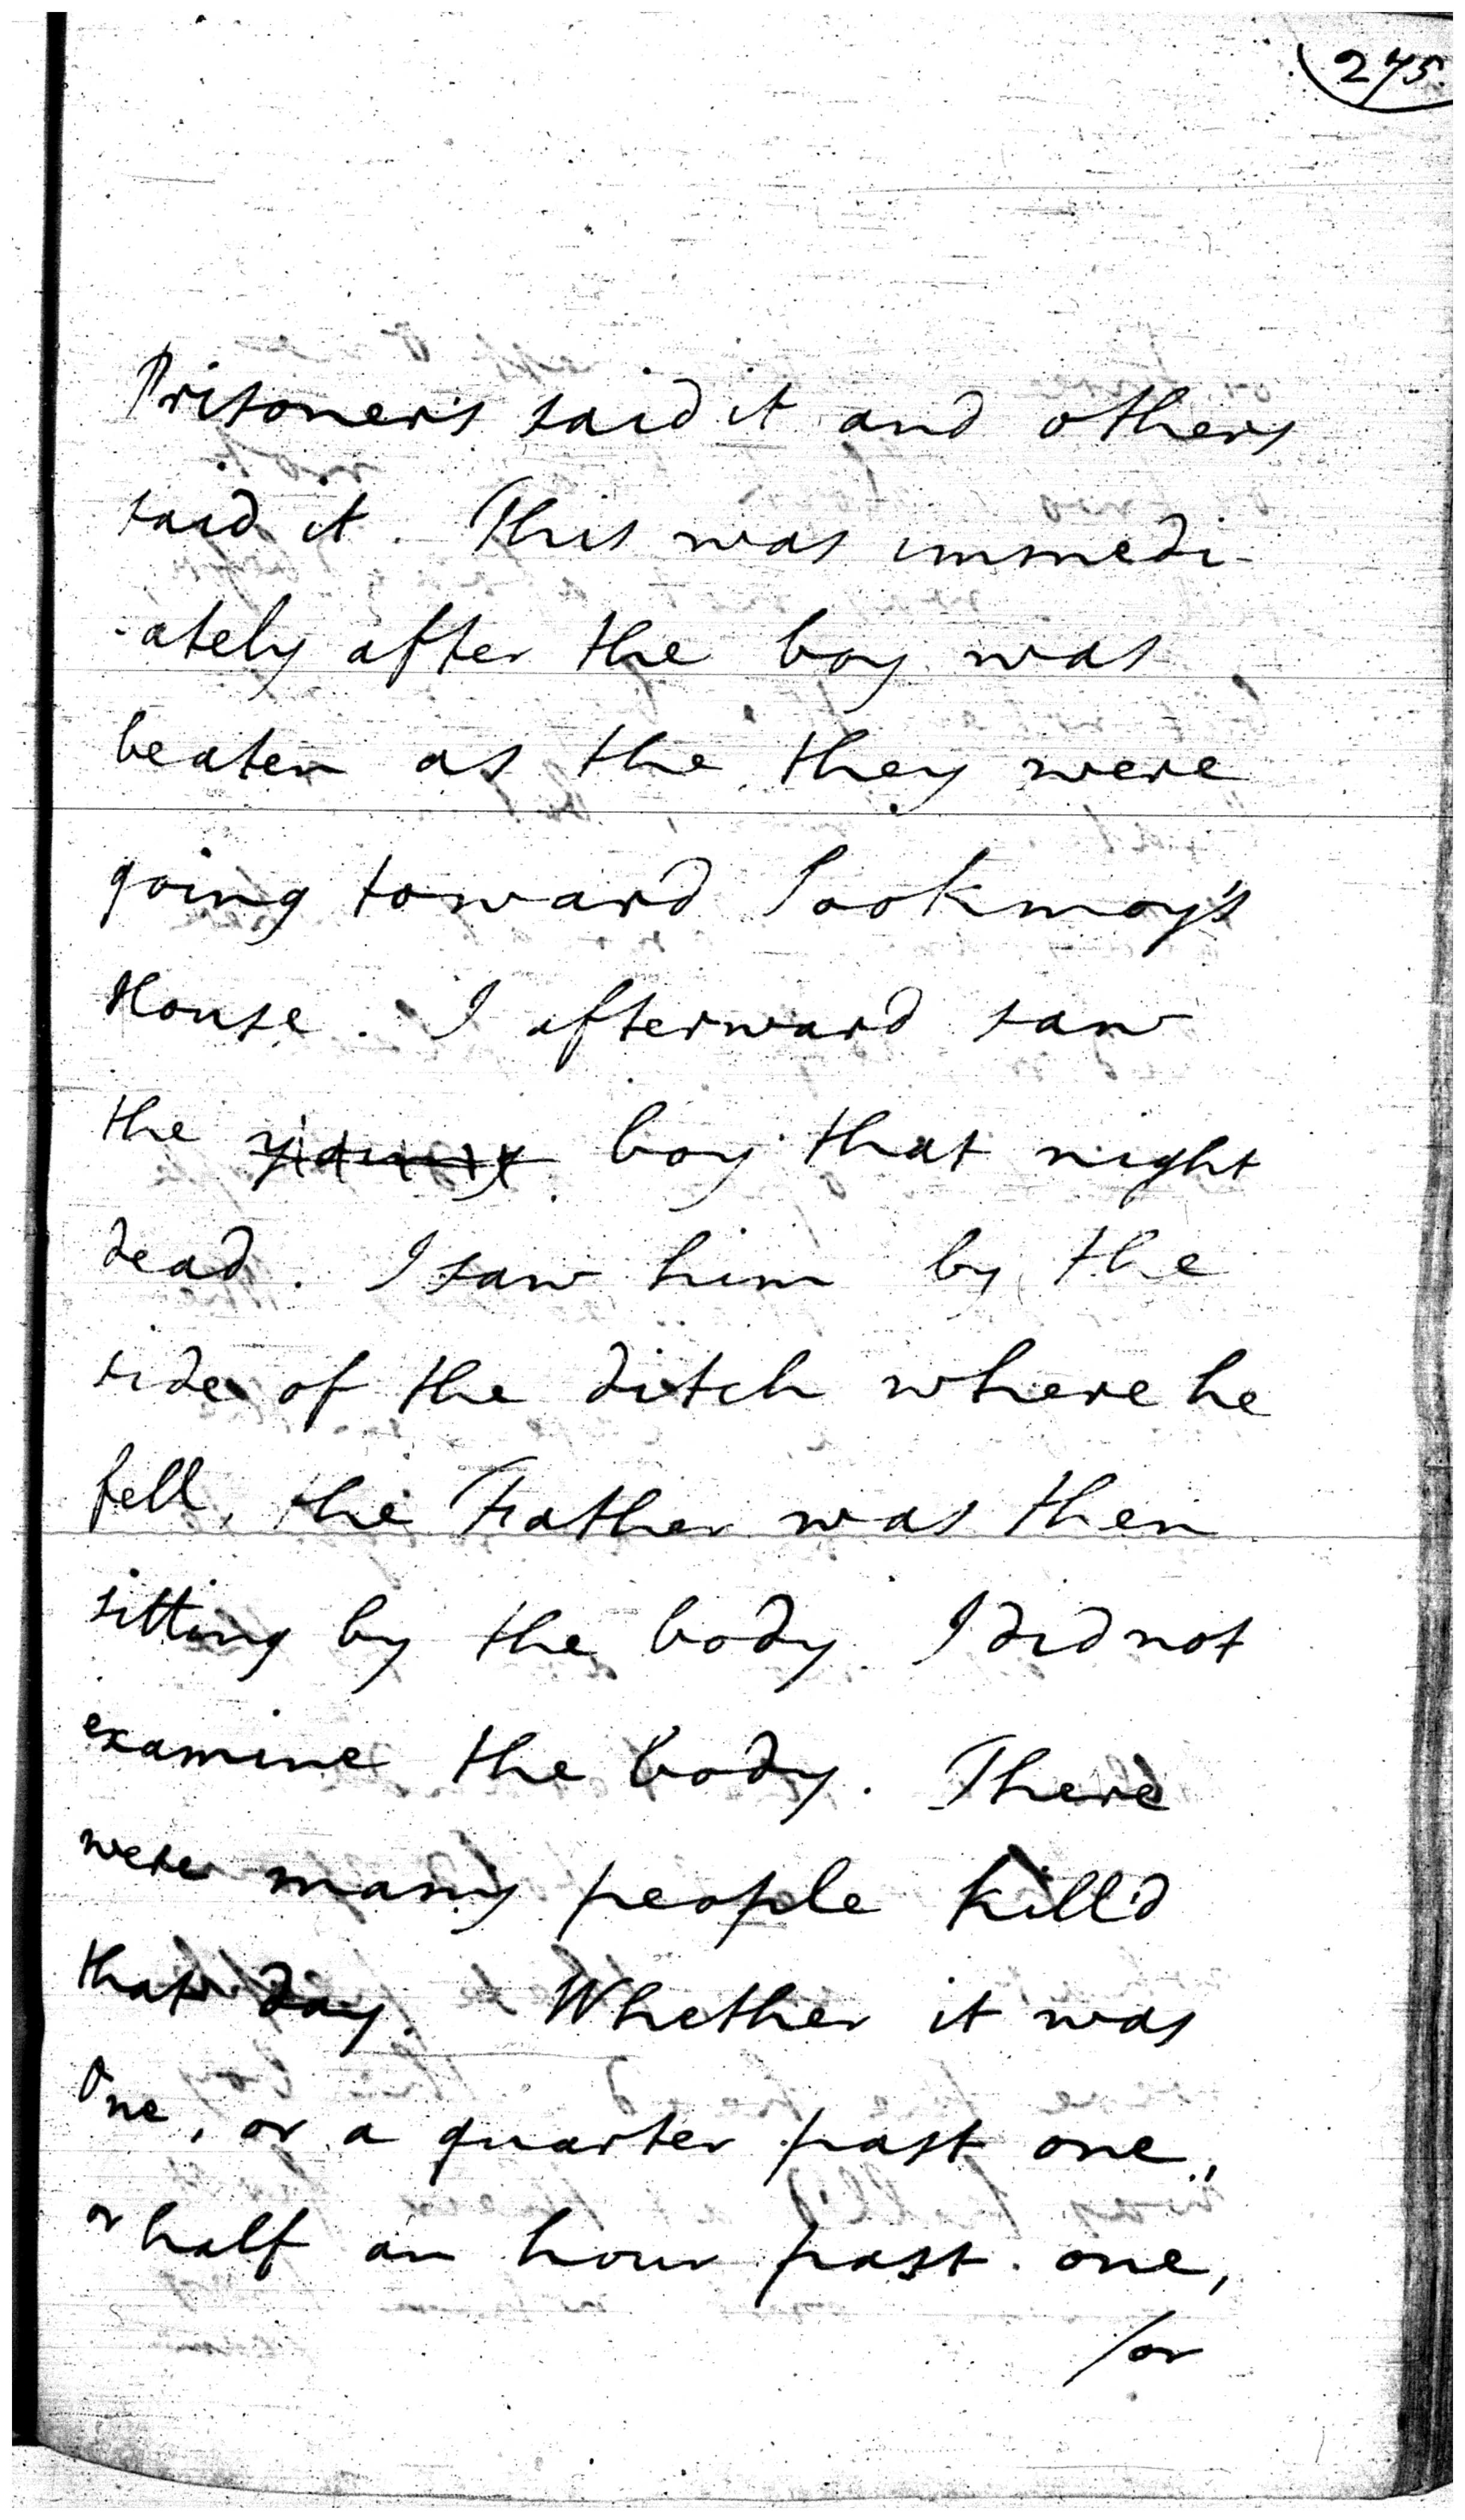 275.
Prisoners said it and others
said it. This was immedi-
-ately after the boy was
beaten as the they were
going toward Sookmoy's
House. I afterward saw
the boy that night
dead. I saw him by the
side of the ditch where he
fell, the Father was then
sitting by the body. I did not
examine the body. There
were many people kill'd
that day. Whether it was
One, or a quarter past one,
or half an hour past one,
/or